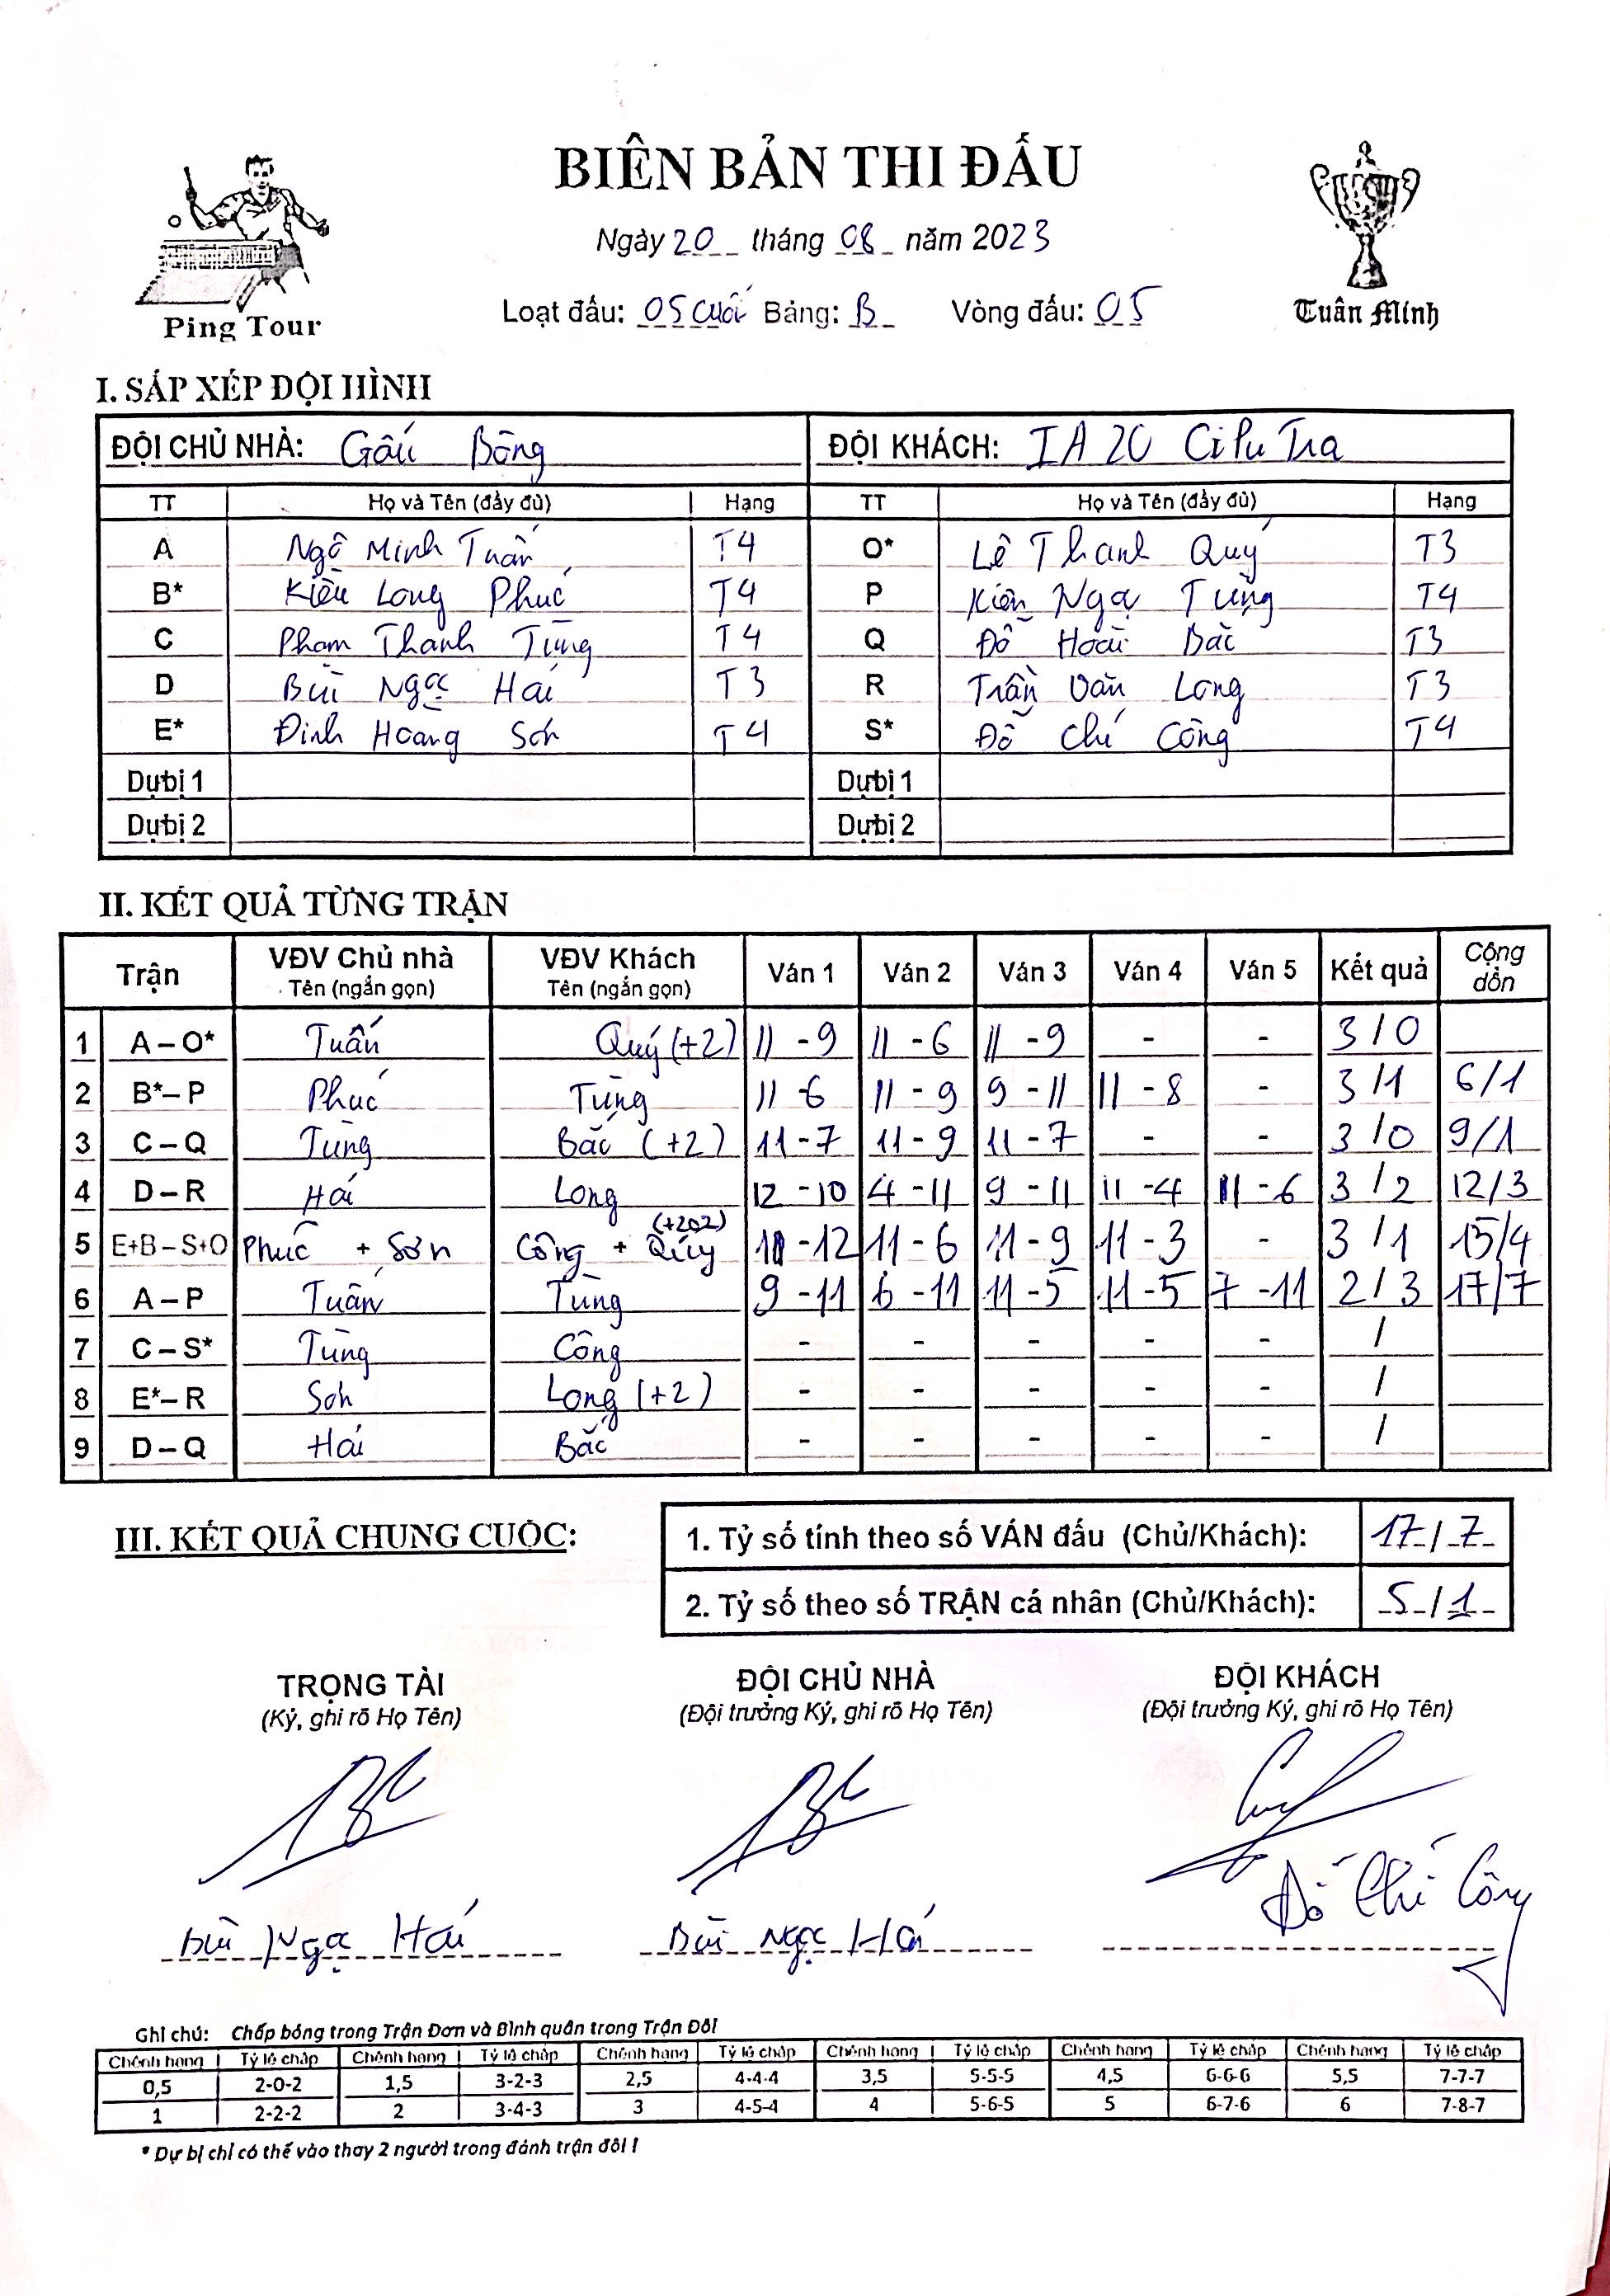 BIÊN BẢN THI ĐẤU
Ngày 20 tháng 08 năm 2023
Loạt đấu: 05 cuối Bảng: B Vòng đấu: 05
Ping Tour
Tuân Minh
I. SẮP XẾP ĐỘI HÌNH
ĐỘI CHỦ NHÀ: Gấu Bông ĐỘI KHÁCH: IA20 CiPuTra
TT Họ và Tên (đầy đủ) Hạng TT Họ và Tên (đầy đủ) Hạng
A Ngô Minh Tuấn T4 O* Lê Thanh Quý T3
B* Kiều Long Phúc T4 P Kiên Ngọc Tùng T4
C Phạm Thanh Tùng T4 Q Đỗ Hoài Bắc T3
D Bùi Ngọc Hải T3 R Trần Văn Long T3
E* Đinh Hoàng Sơn T4 S* Đỗ Chí Công T4
Dự bị 1 Dự bị 1
Dự bị 2 Dự bị 2
II. KẾT QUẢ TỪNG TRẬN
Trận VĐV Chủ nhà Tên (ngắn gọn) VĐV Khách Tên (ngắn gọn) Ván 1 Ván 2 Ván 3 Ván 4 Ván 5 Kết quả Cộng dồn
1 A – O* Tuấn Quý (+2) 11 - 9 11 - 6 11 - 9 - - 3 / 0
2 B* – P Phúc Tùng 11 - 6 11 - 9 9 - 11 11 - 8 - 3 / 1 6/1
3 C – Q Tùng Bắc (+2) 11 - 7 11 - 9 11 - 7 - - 3 / 0 9/1
4 D – R Hải Long 12 - 10 4 - 11 9 - 11 11 - 4 11 - 6 3 / 2 12/3
5 E+B – S+O Phúc + Sơn Công + Quý (+202) 10 - 12 11 - 6 11 - 9 11 - 3 - 3 / 1 15/4
6 A – P Tuấn Tùng 9 - 11 6 - 11 11 - 5 11 - 5 7 - 11 2 / 3 17/7
7 C – S* Tùng Công - - - - - /
8 E* – R Sơn Long (+2) - - - - - /
9 D – Q Hải Bắc - - - - - /
III. KẾT QUẢ CHUNG CUỘC:
1. Tỷ số tính theo số VÁN đấu (Chủ/Khách): 17 / 7
2. Tỷ số theo số TRẬN cá nhân (Chủ/Khách): 5 / 1
TRỌNG TÀI ĐỘI CHỦ NHÀ ĐỘI KHÁCH
(Ký, ghi rõ Họ Tên) (Đội trưởng Ký, ghi rõ Họ Tên) (Đội trưởng Ký, ghi rõ Họ Tên)
Bùi Ngọc Hải Bùi Ngọc Hải Đỗ Chí Công
Ghi chú: Chấp bóng trong Trận Đơn và Bình quân trong Trận Đôi
Chênh hạng Tỷ lệ chấp Chênh hạng Tỷ lệ chấp Chênh hạng Tỷ lệ chấp Chênh hạng Tỷ lệ chấp Chênh hạng Tỷ lệ chấp Chênh hạng Tỷ lệ chấp
0,5 2-0-2 1,5 3-2-3 2,5 4-4-4 3,5 5-5-5 4,5 6-6-6 5,5 7-7-7
1 2-2-2 2 3-4-3 3 4-5-4 4 5-6-5 5 6-7-6 6 7-8-7
* Dự bị chỉ có thể vào thay 2 người trong đánh trận đôi !